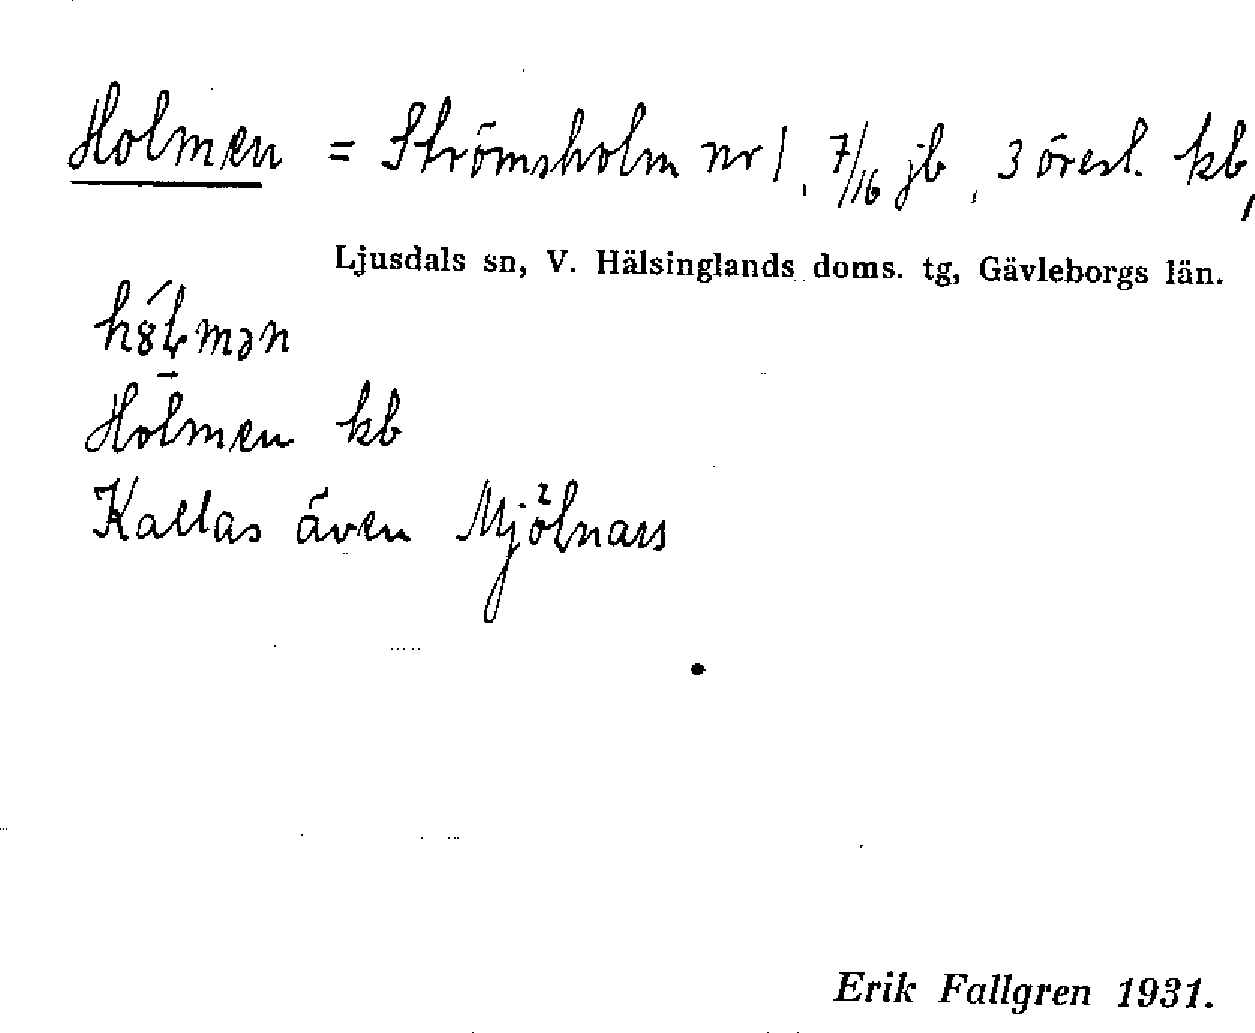 Holmen = Strömsholm nr 1, 7/16 jb, 3 öresl. kb,
Ljusdals sn, V. Hälsinglands doms. tg, Gävleborgs län.
Hōlmen kb
Kallas även Mjölnars
Erik Fallgren 1931.